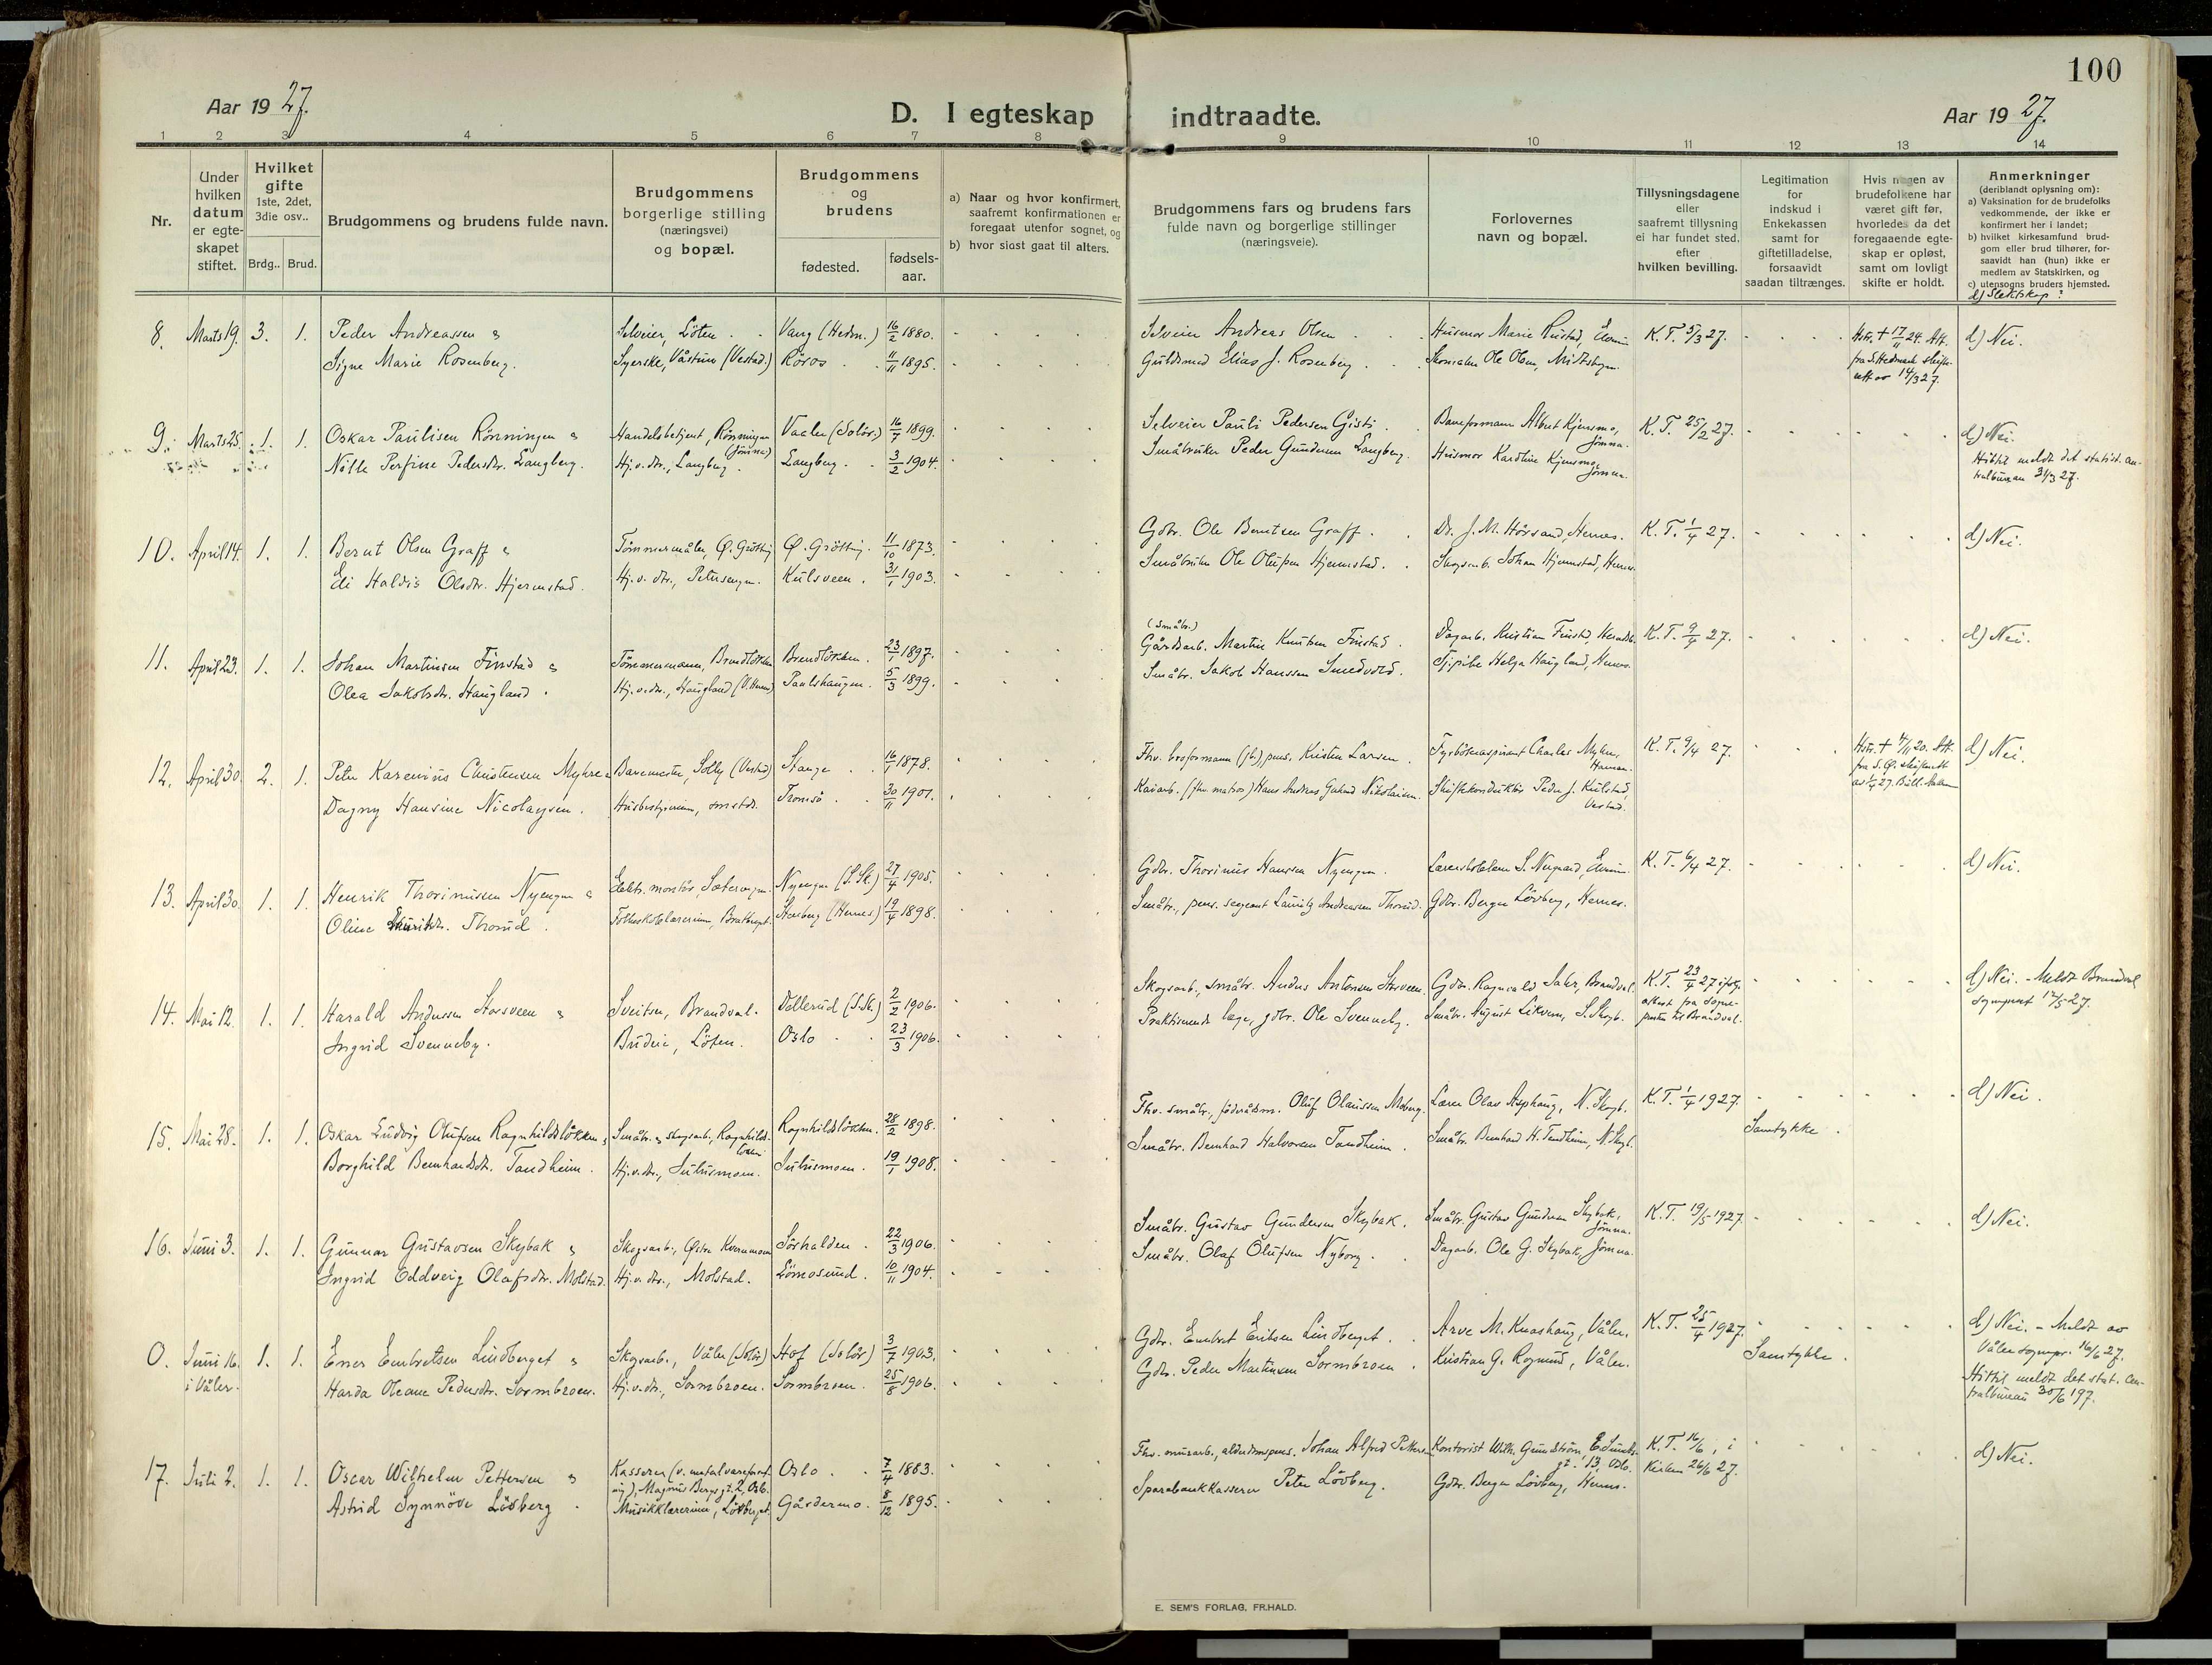 100
Aar 19 27.
D. I egteskap indtraadte.
Aar 19 27.
1 2 3 4 5 6 7 8 9 10 11 12 13 14
Nr.
Under hvilken datum er egteskapet stiftet.
Hvilket gifte 1ste, 2det, 3die osv..
Brdg.. Brud.
Brudgommens og brudens fulde navn.
Brudgommens borgerlige stilling (næringsvei) og bopæl.
Brudgommens og brudens
fødested. fødsels-aar.
a) Naar og hvor konfirmert, saafremt konfirmationen er foregaat utenfor sognet, og
b) hvor sidst gaat til alters.
Brudgommens fars og brudens fars fulde navn og borgerlige stillinger (næringsveie).
Forlovernes navn og bopæl.
Tillysningsdagene eller saafremt tillysning ei har fundet sted, efter hvilken bevilling.
Legitimation for indskud i Enkekassen samt for giftetilladelse, forsaavidt saadan tiltrænges.
Hvis nogen av brudefolkene har været gift før, hvorledes da det foregaaende egteskap er opløst, samt om lovligt skifte er holdt.
Anmerkninger (deriblandt oplysning om):
a) Vaksination for de brudefolks vedkommende, der ikke er konfirmert her i landet;
b) hvilket kirkesamfund brudgom eller brud tilhører, forsaavidt han (hun) ikke er medlem av Statskirken, og
c) utensogns bruders hjemsted.
d) Slektskap?
8. Marts 19. 3. 1. Peder Andreassen & Selveier, Löten. Vang (Hedm.) 16/2 1880. Selveier Andreas Olsen Husmor Marie Rustad, K.T. 5/3 27. Hstr. † 17/11 24. Att. d) Nei.
Signe Marie Rosenberg. Syerske, Våstun (Vestad.) Röros 11/11 1895. Guldsmed Elias J. Rosenberg Skomaker Ole Olsen, fra S. Hedmark skifterett av 14/3 27.
9. Marts 25. 1. 1. Oskar Paulisen Rönningen & Handelsbetjent, Rönningen (Jömna) Vaaler (Solör.) 16/7 1899. Selveier Pauli Pedersen Gisti. Baneformann Albert Kjensmo, Jömna. K.T. 25/2 27. d) Nei.
Nille Perfine Pedersdtr. Langberg. Hj.v.dtr., Langberg. Langberg. 3/2 1904. Småbruker Peder Gundersen Langberg. Husmor Karoline Kjensmo, Jömna. Hittil meldt det statist. centralbureau 31/3 27.
10. April 14. 1. 1. Bernt Olsen Graff & Tömmermåler, Ø. Gröttig Ø. Gröttig. 11/10 1873. Gdbr. Ole Berntsen Graff. Dr. J. M. Hörsand, Hernes. K.T. 1/4 27. d) Nei.
Edi Haldis Olsdtr. Hjermstad. Hj.v.dtr., Petersengen. Kulsveen. 31/1 1903. Småbruker Ole Olufsen Hjermstad. Skogsarb. Johan Hjermstad, Hernes.
11. April 23. 1. 1. Johan Martinsen Finstad & Tömmermann, Brendlökken Brendlökken. 23/1 1897. (Småbr.) Gårdsarb. Martin Knutsen Finstad. Dagarb. Kristian Finstad, K.T. 9/4 27. d) Nei.
Olea Jakobsdtr. Haugland. Hj.v.dtr., Haugland (V. Hernes) Paulshaugen. 5/3 1899. Småbr. Jakob Hanssen Smedvold. Frk. Helga Haugland, Hernes.
12. April 30. 2. 1. Peter Karenius Christensen Myhre & Banemester, Solby (Vestad) Stange 16/1 1878. Fhv. broformann (jb.), pens. Kristen Larsen. Fyrböteraspirant Charles Myhre, Hamar. K.T. 9/4 27. Hstr. † 4/11 20. Att. d) Nei.
Dagny Hansine Nicolaysen. Husbestyrerinne, smstds. Tromsö 30/11 1901. Kaiarb. (fhv. matros) Hans Andreas Nikolaisen. Skiftekonduktör Peder J. Kulstad, Vestad. fra S. Ø. skifterett av 1/4 27.
13. April 30. 1. 1. Henrik Thorinussen Nyengen & Elektr. montör, Sætervegen. Nyengen (S. Sk.) 27/4 1905. Gdbr. Thorinus Hansen Nyengen. S. Nergaard, K.T. 6/4 27. d) Nei.
Oline Thorud. Folkeskolelærerinne, Stenberg (Hernes) 19/4 1898. Småbr., pens. sergeant Lauritz Andreassen Thorud. Gdbr. Berger Lövberg, Hernes.
14. Mai 12. 1. 1. Harald Andersen Storsveen & Sveitser, Brandval. Döllerud (S.Sk.) 2/2 1906. Skogsarb., småbr. Anders Antonsen Storsveen. Gdbr. Ragnvald Sahr, Brandval. K.T. 23/4 27 ifölge attest fra sognepresten til Brandval. d) Nei. - Meldt Brandval sogneprest 12/5 27.
Ingrid Svenneby. Budeie, Löten. Oslo 23/3 1906. Praktiserende læge, gdbr. Ole Svenneby. Småbr. August Likvern, S. Skogb.
15. Mai 28. 1. 1. Oskar Ludvig Olufsen Ragnhildslökken & Småbr. & skogsarb., Ragnhildslökken Ragnhildslökken. 28/2 1898. Fhv. småbr., föderådsm. Oluf Olaussen Moberg. Lærer Olav Asphaug, N. Skogb. K.T. 1/4 1927. d) Nei.
Borghild Bernhardsdtr. Tandheim. Hj.v.dtr., Julusmoen. Julusmoen. 19/1 1908. Småbr. Bernhard Halvorsen Tandheim. Småbr. Bernhard H. Tandheim, N. Skgb. Samtykke.
16. Juni 3. 1. 1. Gunnar Gustavsen Skybak & Skogsarb., Østre Kvernmoen Sörhalden. 22/3 1906. Småbr. Gustav Gundersen Skybak. Småbr. Gustav Gundersen Skybak, Jömna. K.T. 19/5 1927. d) Nei.
Ingrid Eddveig Olafsdtr. Molstad. Hj.v.dtr., Molstad. Lömosund. 10/11 1904. Småbr. Olaf Olufsen Nyborg. Dagarb. Ole G. Skybak, Jömna.
0. Juni 16. i Våler. 1. 1. Ener Embretsen Lindberget & Skogsarb., Våler (Solör) Hof (Solör) 3/7 1903. Gdbr. Embret Eriksen Lindberget. Arve M. Knashaug, Våler. K.T. 25/4 1927. d) Nei. - Meldt av Våler sognepr. 16/6 27.
Harda Oleane Pedersdtr. Sormbroen. Hj.v.dtr., Sormbroen. Sormbroen. 25/8 1906. Gdbr. Peder Martinsen Sormbroen. Kristian G. Rogneud, Våler. Samtykke. Hittil meldt det stat. centralbureau 30/6 197.
17. Juli 2. 1. 1. Oscar Wilhelm Pettersen & Kasserer (v. metalvareforretnig), Magnus Bergs gt. 2, Oslo. Oslo 7/4 1883. Fhv. murarb., alderdomspens. Johan Alfred Petters. Kontorist Wilh. Grundström, gt. 13, Oslo. K.T. 16/6, i Kirken 26/6 27. d) Nei.
Astrid Synnöve Lövberg. Musikklærerinne, Lövberget. Gårdermo. 8/12 1895. Sparebankkasserer Peter Lövberg. Gdbr. Berger Lövberg, Hernes.
E. SEM'S FORLAG, FR.HALD.